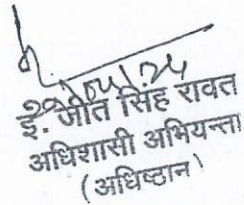 इ. जीत सिंह रावत
अधिशासी अभियन्ता
(अधिष्ठान)